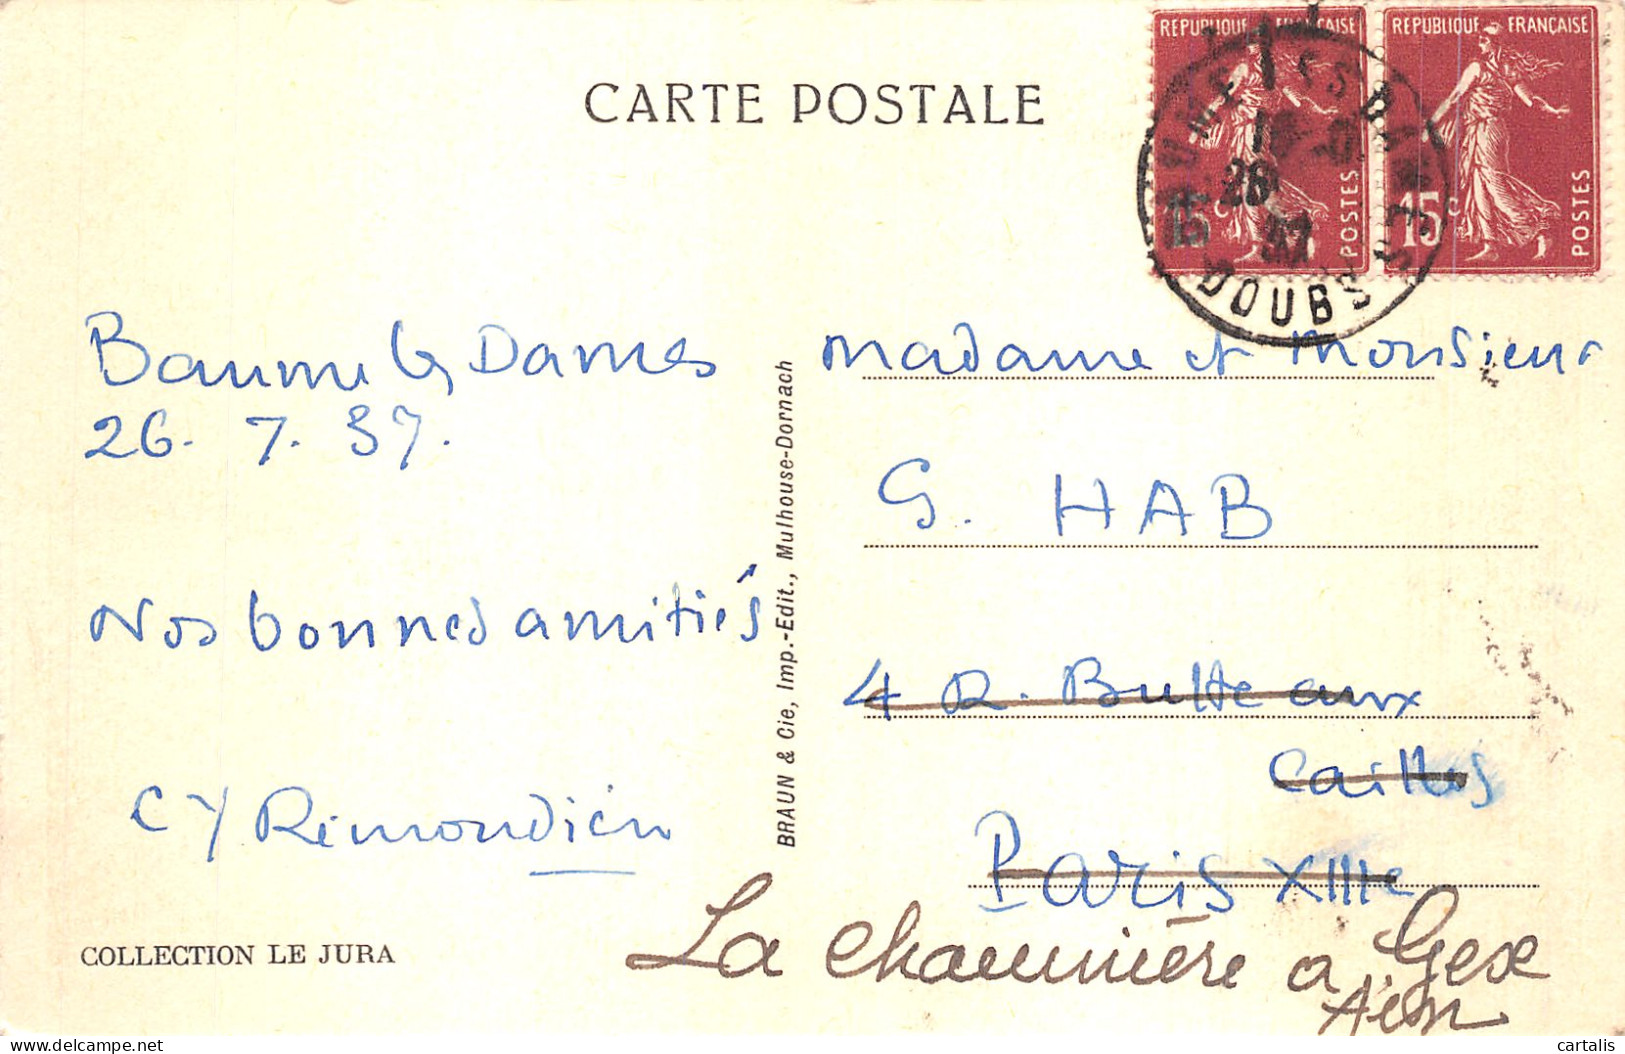 CARTE POSTALE
REPUBLIQUE FRANÇAISE
15c
POSTES
REPUBLIQUE FRANÇAISE
15c
POSTES
BAUME LES DAMES
26
37
DOUBS
Baume les Dames
26. 7. 37.
Nos bonnes amitiés
COLLECTION LE JURA
BRAUN & Cie, Imp.-Edit., Mulhouse-Dornach
Madame et Monsieur
G. HAB
4 R. Butte aux
Cailles
Paris XIIIe
La Chaumière a Gex
Ain
cartalis